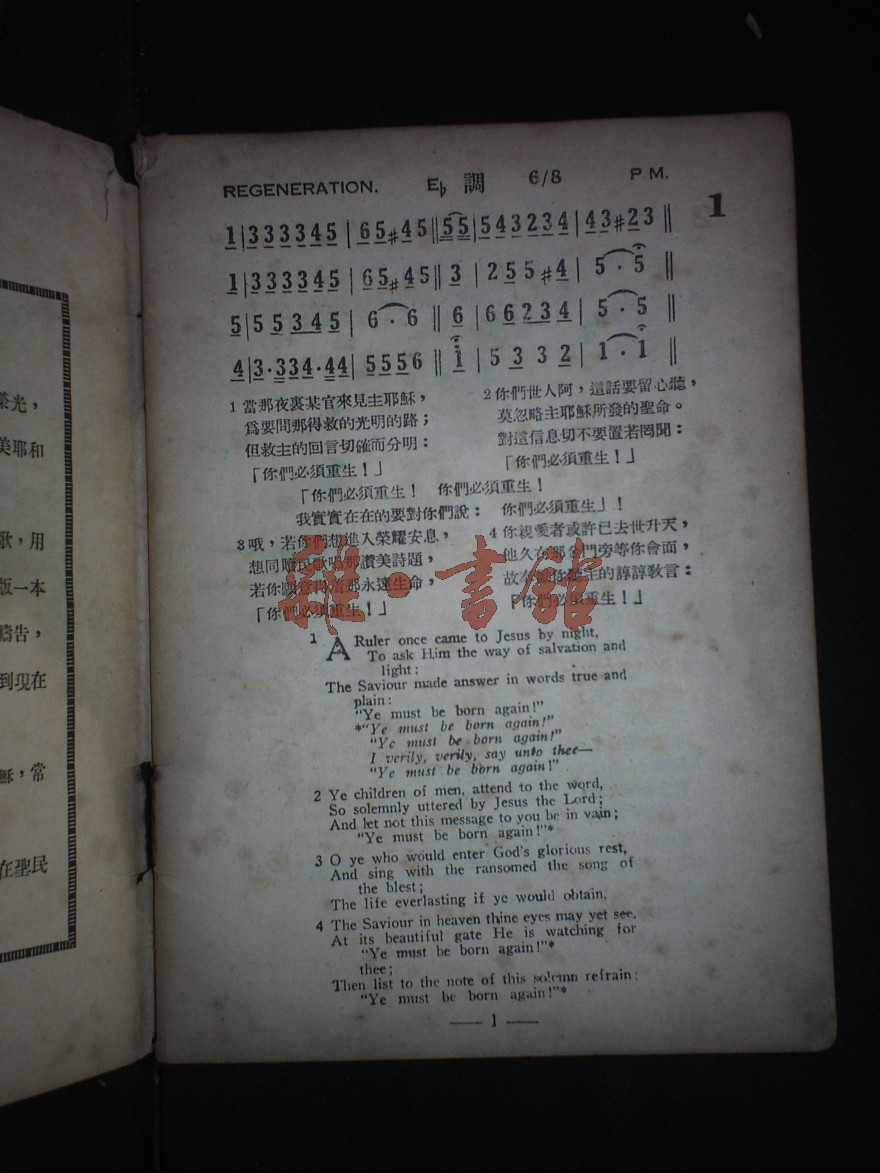 榮光，
美耶和
歌，用
版一本
禱告，
到現在
穌，常
在聖民
REGENERATION. E♭ 調 6/8 P M.
1
1|333345|65#45‖55|543234|43#23‖
1|333345|65#45‖3|255#4|5·5‖
5|55345|6·6‖6|66234|5·5‖
4|3·334·44|5556‖1|5332|1·1‖
1 當那夜裏某官來見主耶穌，
爲要問那得救的光明的路；
但救主的回言切確而分明：
「你們必須重生！」
2 你們世人阿，這話要留心聽，
莫忽略主耶穌所發的聖命。
對這信息切不要置若罔聞：
「你們必須重生！」
「你們必須重生！ 你們必須重生！
我實實在在的要對你們說： 你們必須重生」！
3 哦，若你們想進入榮耀安息，
想同贖民歌唱那讚美詩題，
若你願意得着那永遠生命，
「你們必須重生！」
4 你親愛者或許已去世升天，
他久在那金門旁等你會面，
故你主的諄諄敎言：
「你們必須重生！」
雜·書館
1 A Ruler once came to Jesus by night,
To ask Him the way of salvation and
light:
The Saviour made answer in words true and
plain:
"Ye must be born again!"
*"Ye must be born again!"
"Ye must be born again!"
I verily, verily, say unto thee—
"Ye must be born again!"
2 Ye children of men, attend to the word,
So solemnly uttered by Jesus the Lord;
And let not this message to you be in vain;
"Ye must be born again!"*
3 O ye who would enter God's glorious rest,
And sing with the ransomed the song of
the blest;
The life everlasting if ye would obtain,
4 The Saviour in heaven thine eyes may yet see,
At its beautiful gate He is watching for
"Ye must be born again!"*
thee;
Then list to the note of this solemn refrain:
"Ye must be born again!"*
— 1 —